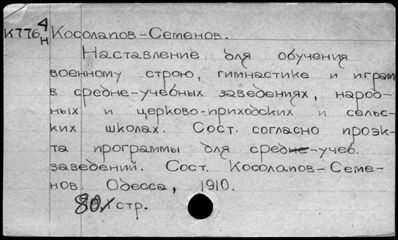 К776 4/н Косолапов-Семенов.
Наставление для обучения
военному строю, гимнастике и играм
в средне-учебных заведениях, народ-
ных и церково-приходских и сельс-
ких школах. Сост. согласно проэк-
та программы для средне-учеб.
заведений. Сост. Косолапов-Семе-
нов. Одесса, 1910.
80. стр.